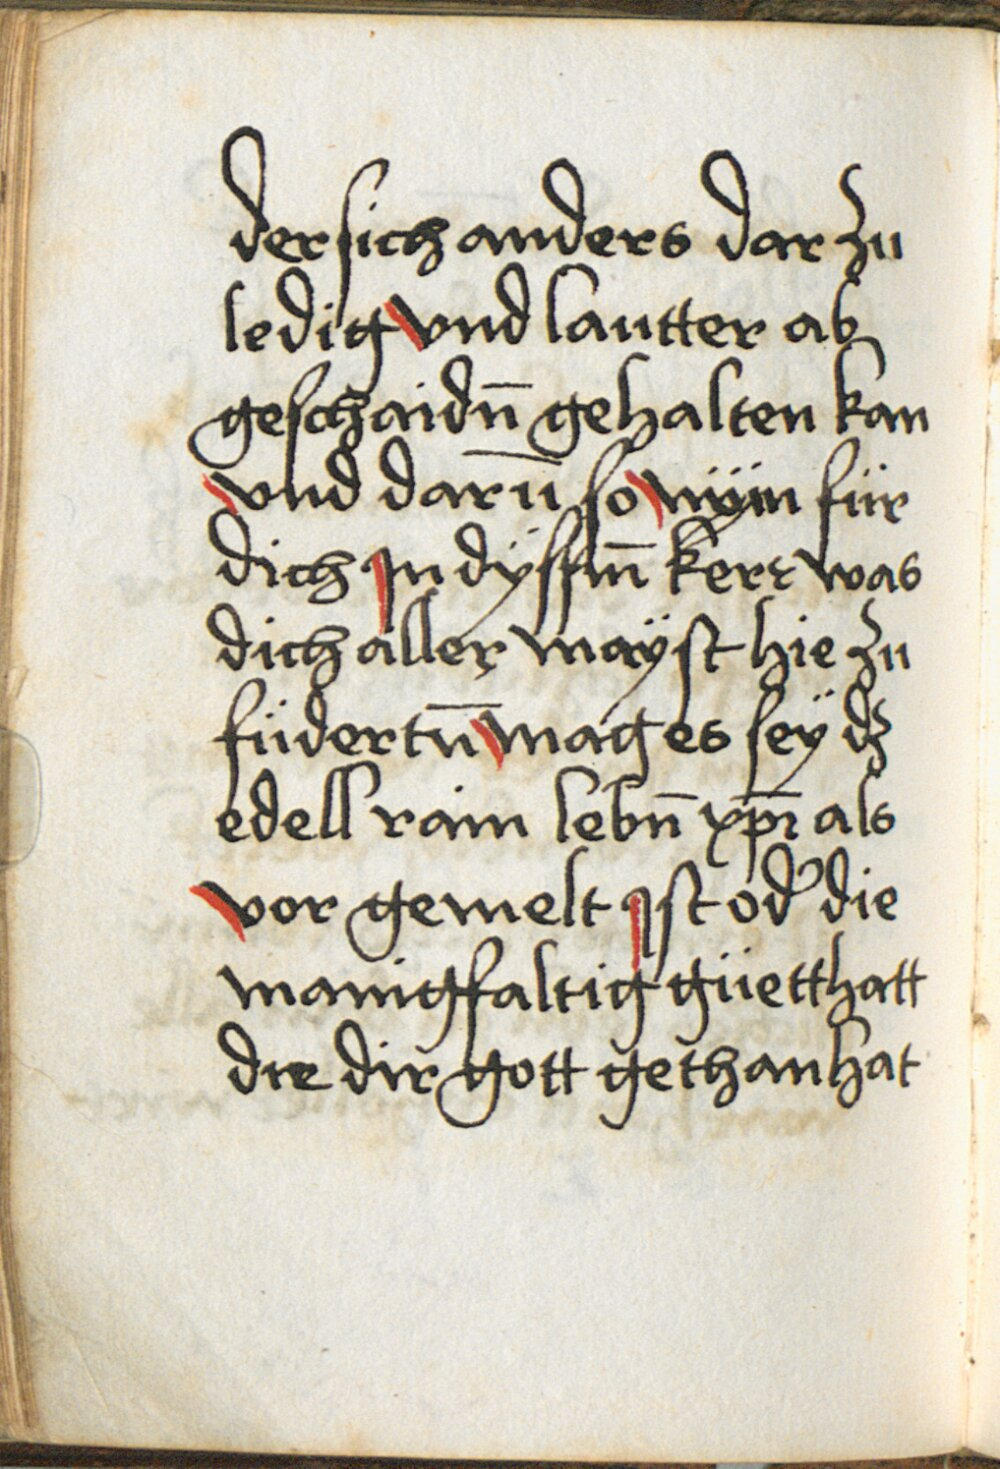 der sich anders dar zu
ledig vnd lautter ab
geschaidn̄ gehalten kan
vnd darū so nym̈ für
dich jn dÿssm̄ kerr was
dich aller maÿst hie zu
füdertn̄ mag es seÿ dz
edell rain lebn̄ xp̄i als
vor gemelt jst od' die
manigfaltig güetthatt
die dir gott gethan hat